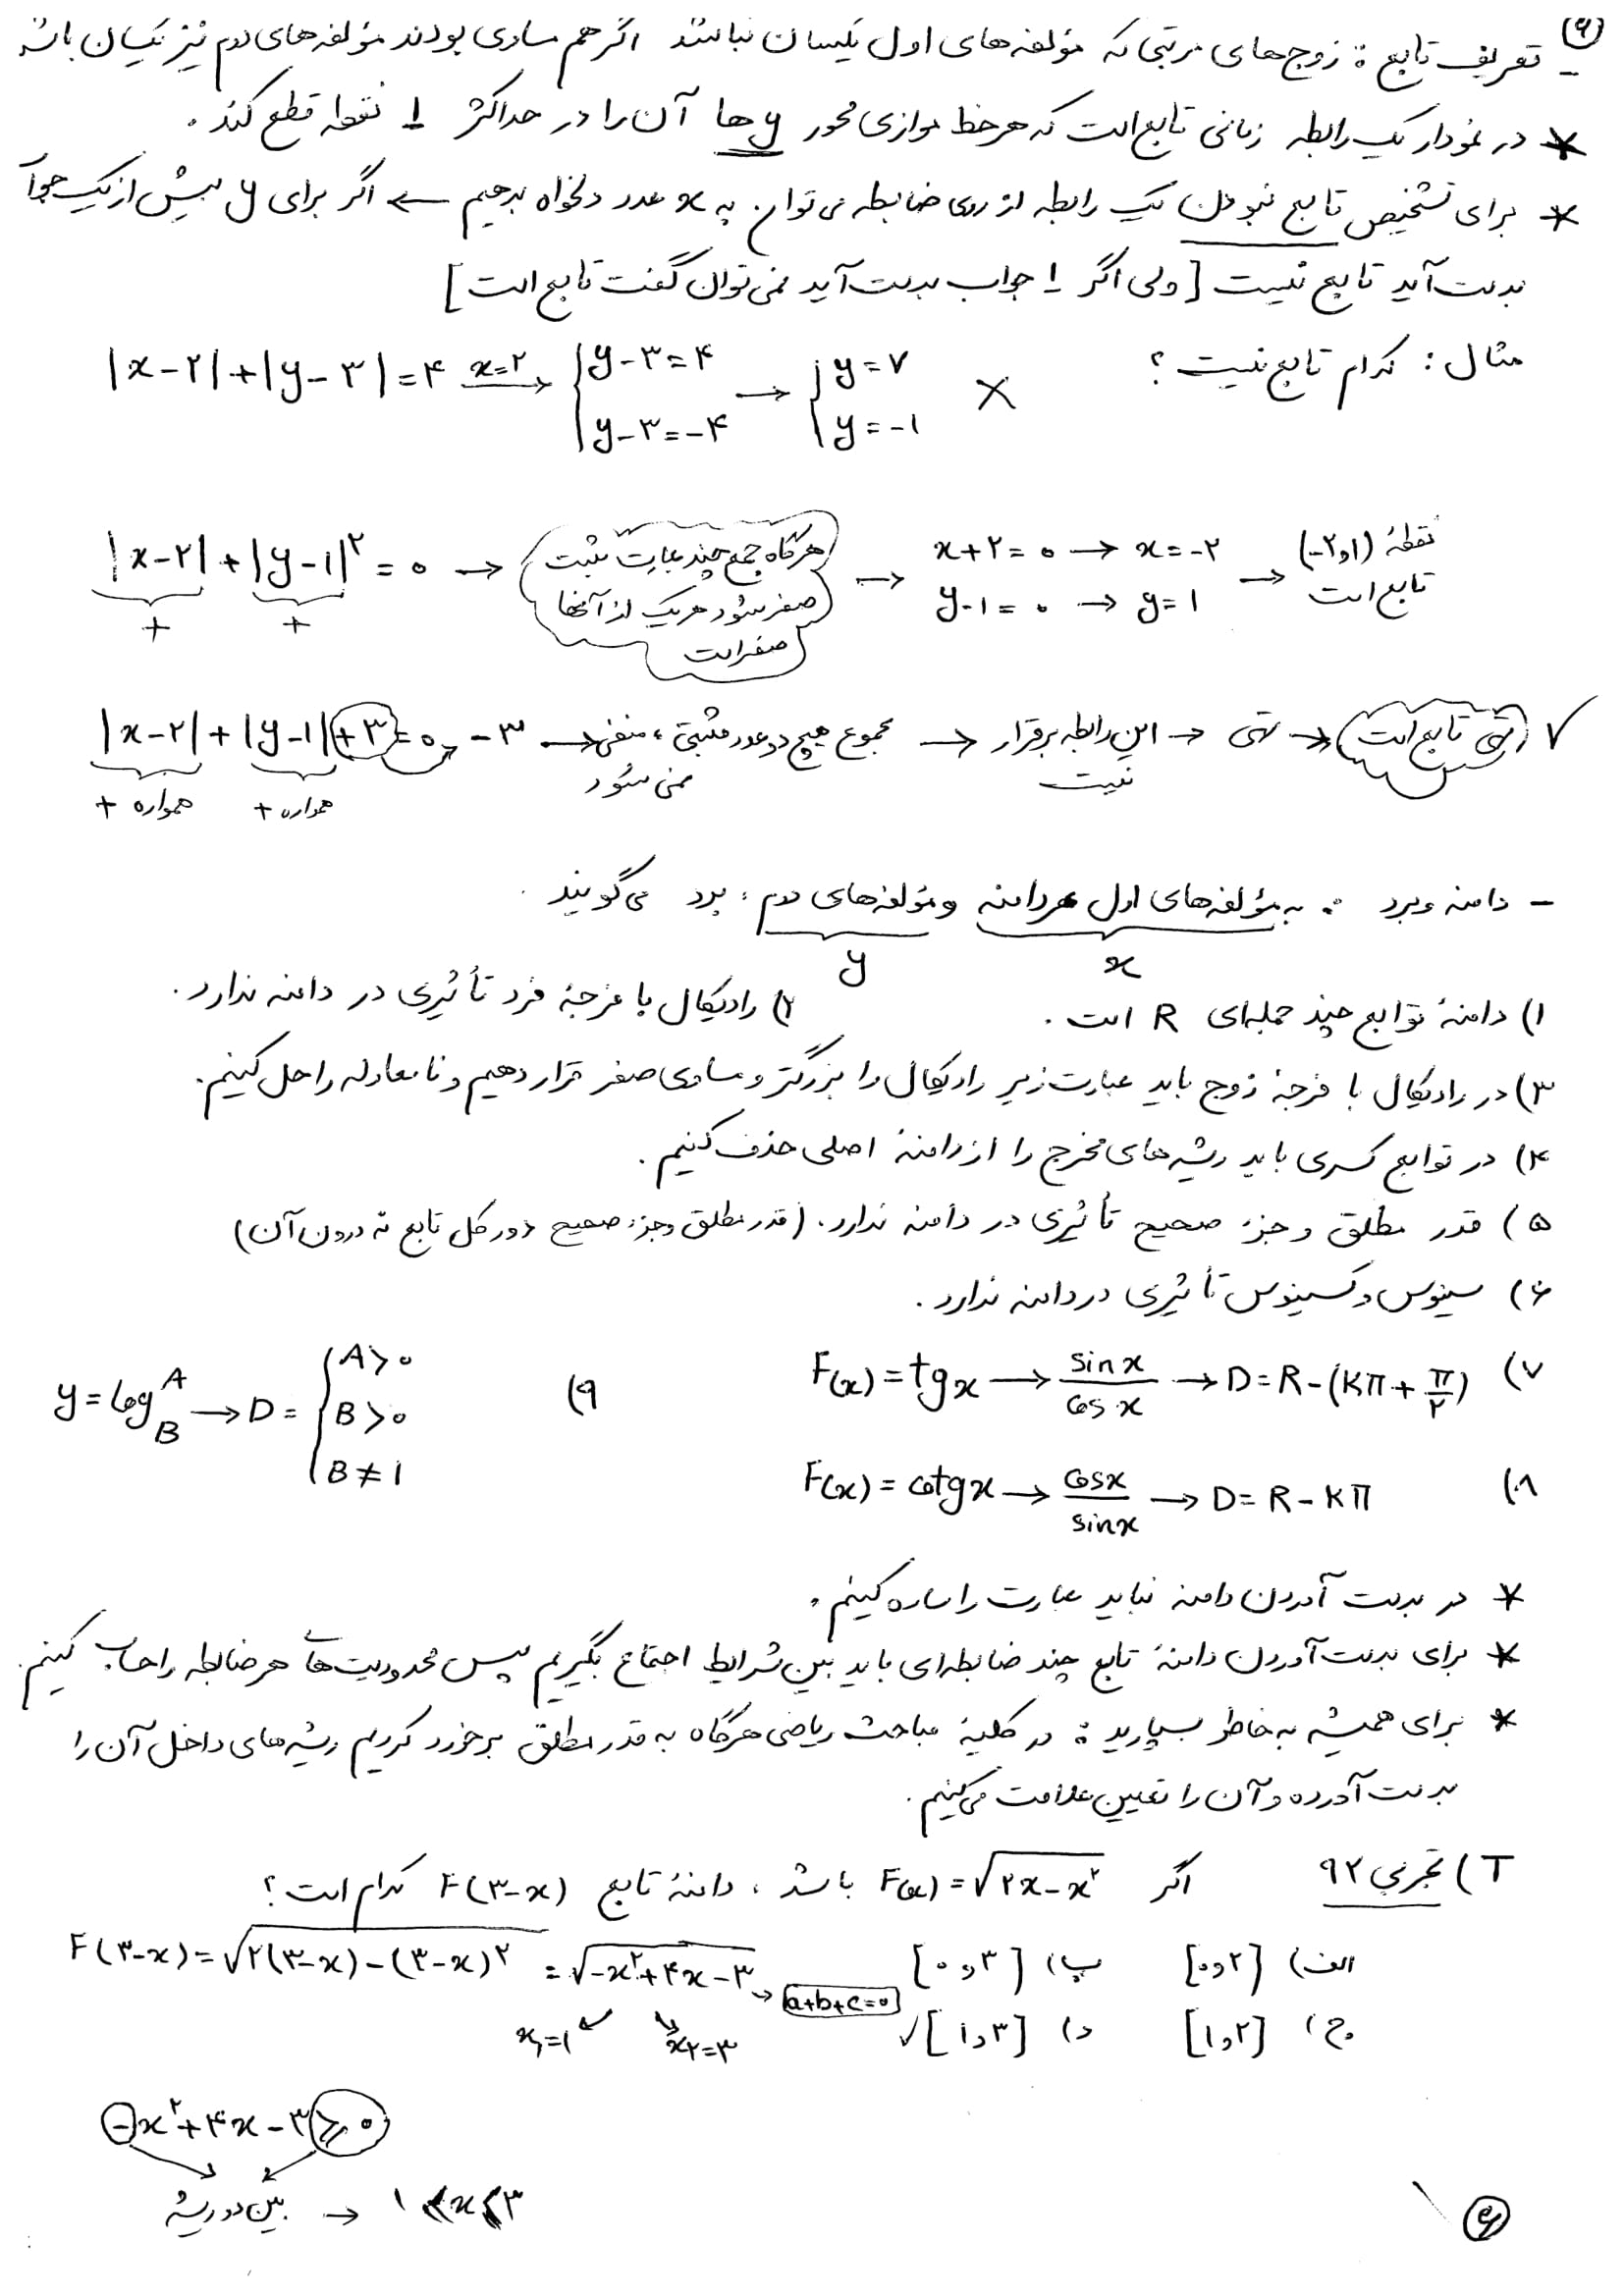 ۶)
- تعریف تابع : زوج‌های مرتبی که مؤلفه‌های اول یکسان نباشد اگر هم مساوی بودند مؤلفه‌های دوم نیز یکسان باشد
* در نمودار یک رابطه زمانی تابع است که هر خط موازی محور y ها آن را در حداکثر ۱ نقطه قطع کند .
* برای تشخیص تابع نبودن یک رابطه از روی ضابطه می‌توان به x عدد دلخواه بدهیم ← اگر برای y بیش از یک جواب
بدست آید تابع نیست [ولی اگر ۱ جواب بدست آید نمی‌توان گفت تابع است]
مثال : کدام تابع نیست ؟
|x-۲|+|y-۳|=۴ x=۲ → { y-۳=۴ , y-۳=-۴ → { y=۷ , y=-۱ ✗
|x-۲|+|y-۱|^۲ = ۰ → هرگاه جمع چند عبارت مثبت صفر شود هریک از آنها صفر است → x+۲=۰ → x=-۲ , y-۱=۰ → y=۱ → نقطهٔ (-۲و۱) تابع است
+ +
|x-۲|+|y-۱|+۳=۰ → -۳ → مجموع هیچ دو عدد مثبتی ، منفی نمی‌شود → این رابطه برقرار نیست → تهی → تهی تابع است ✓
همواره + همواره +
- دامنه و برد : به مؤلفه‌های اول دامنه و مؤلفه‌های دوم ، برد می‌گویند .
x y
۱) دامنهٔ توابع چند جمله‌ای R است . ۲) رادیکال با فرجهٔ فرد تأثیری در دامنه ندارد .
۳) در رادیکال با فرجهٔ زوج باید عبارت زیر رادیکال را بزرگتر و مساوی صفر قرار دهیم و نامعادله را حل کنیم .
۴) در توابع کسری باید ریشه‌های مخرج را از دامنهٔ اصلی حذف کنیم .
۵) قدر مطلق و جزء صحیح تأثیری در دامنه ندارد . (قدر مطلق و جزء صحیح دور کل تابع نه درون آن)
۶) سینوس و کسینوس تأثیری در دامنه ندارد .
۷) F(x)=tgx → sinx/cosx → D=R-(kπ+π/۲)
۹) y=log_B^A → D= { A>۰ , B>۰ , B≠۱
۸) F(x)=cotgx → cosx/sinx → D=R-kπ
* در بدست آوردن دامنه نباید عبارت را ساده کنیم .
* برای بدست آوردن دامنهٔ تابع چند ضابطه‌ای باید بین شرایط اجتماع بگیریم سپس محدودیت‌های هر ضابطه را حساب کنیم.
* برای همیشه به خاطر بسپارید : در کلیهٔ مباحث ریاضی هرگاه به قدر مطلق برخورد کردیم ریشه‌های داخل آن را
بدست آورده و آن را تعیین علامت می‌کنیم .
T) تجربی ۹۲ اگر F(x)=√(۲x-x^۲) باشد ، دامنهٔ تابع F(۳-x) کدام است ؟
الف) [۰و۲] ب) [۰و۳]
ج) [۱و۲] د) [۱و۳] ✓
F(۳-x)=√(۲(۳-x)-(۳-x)^۲) = √(-x^۲+۴x-۳) → a+b+c=۰
x۱=۱ x۲=۳
-x^۲+۴x-۳ ≥ ۰
بین دو ریشه → ۱≤x≤۳
۶